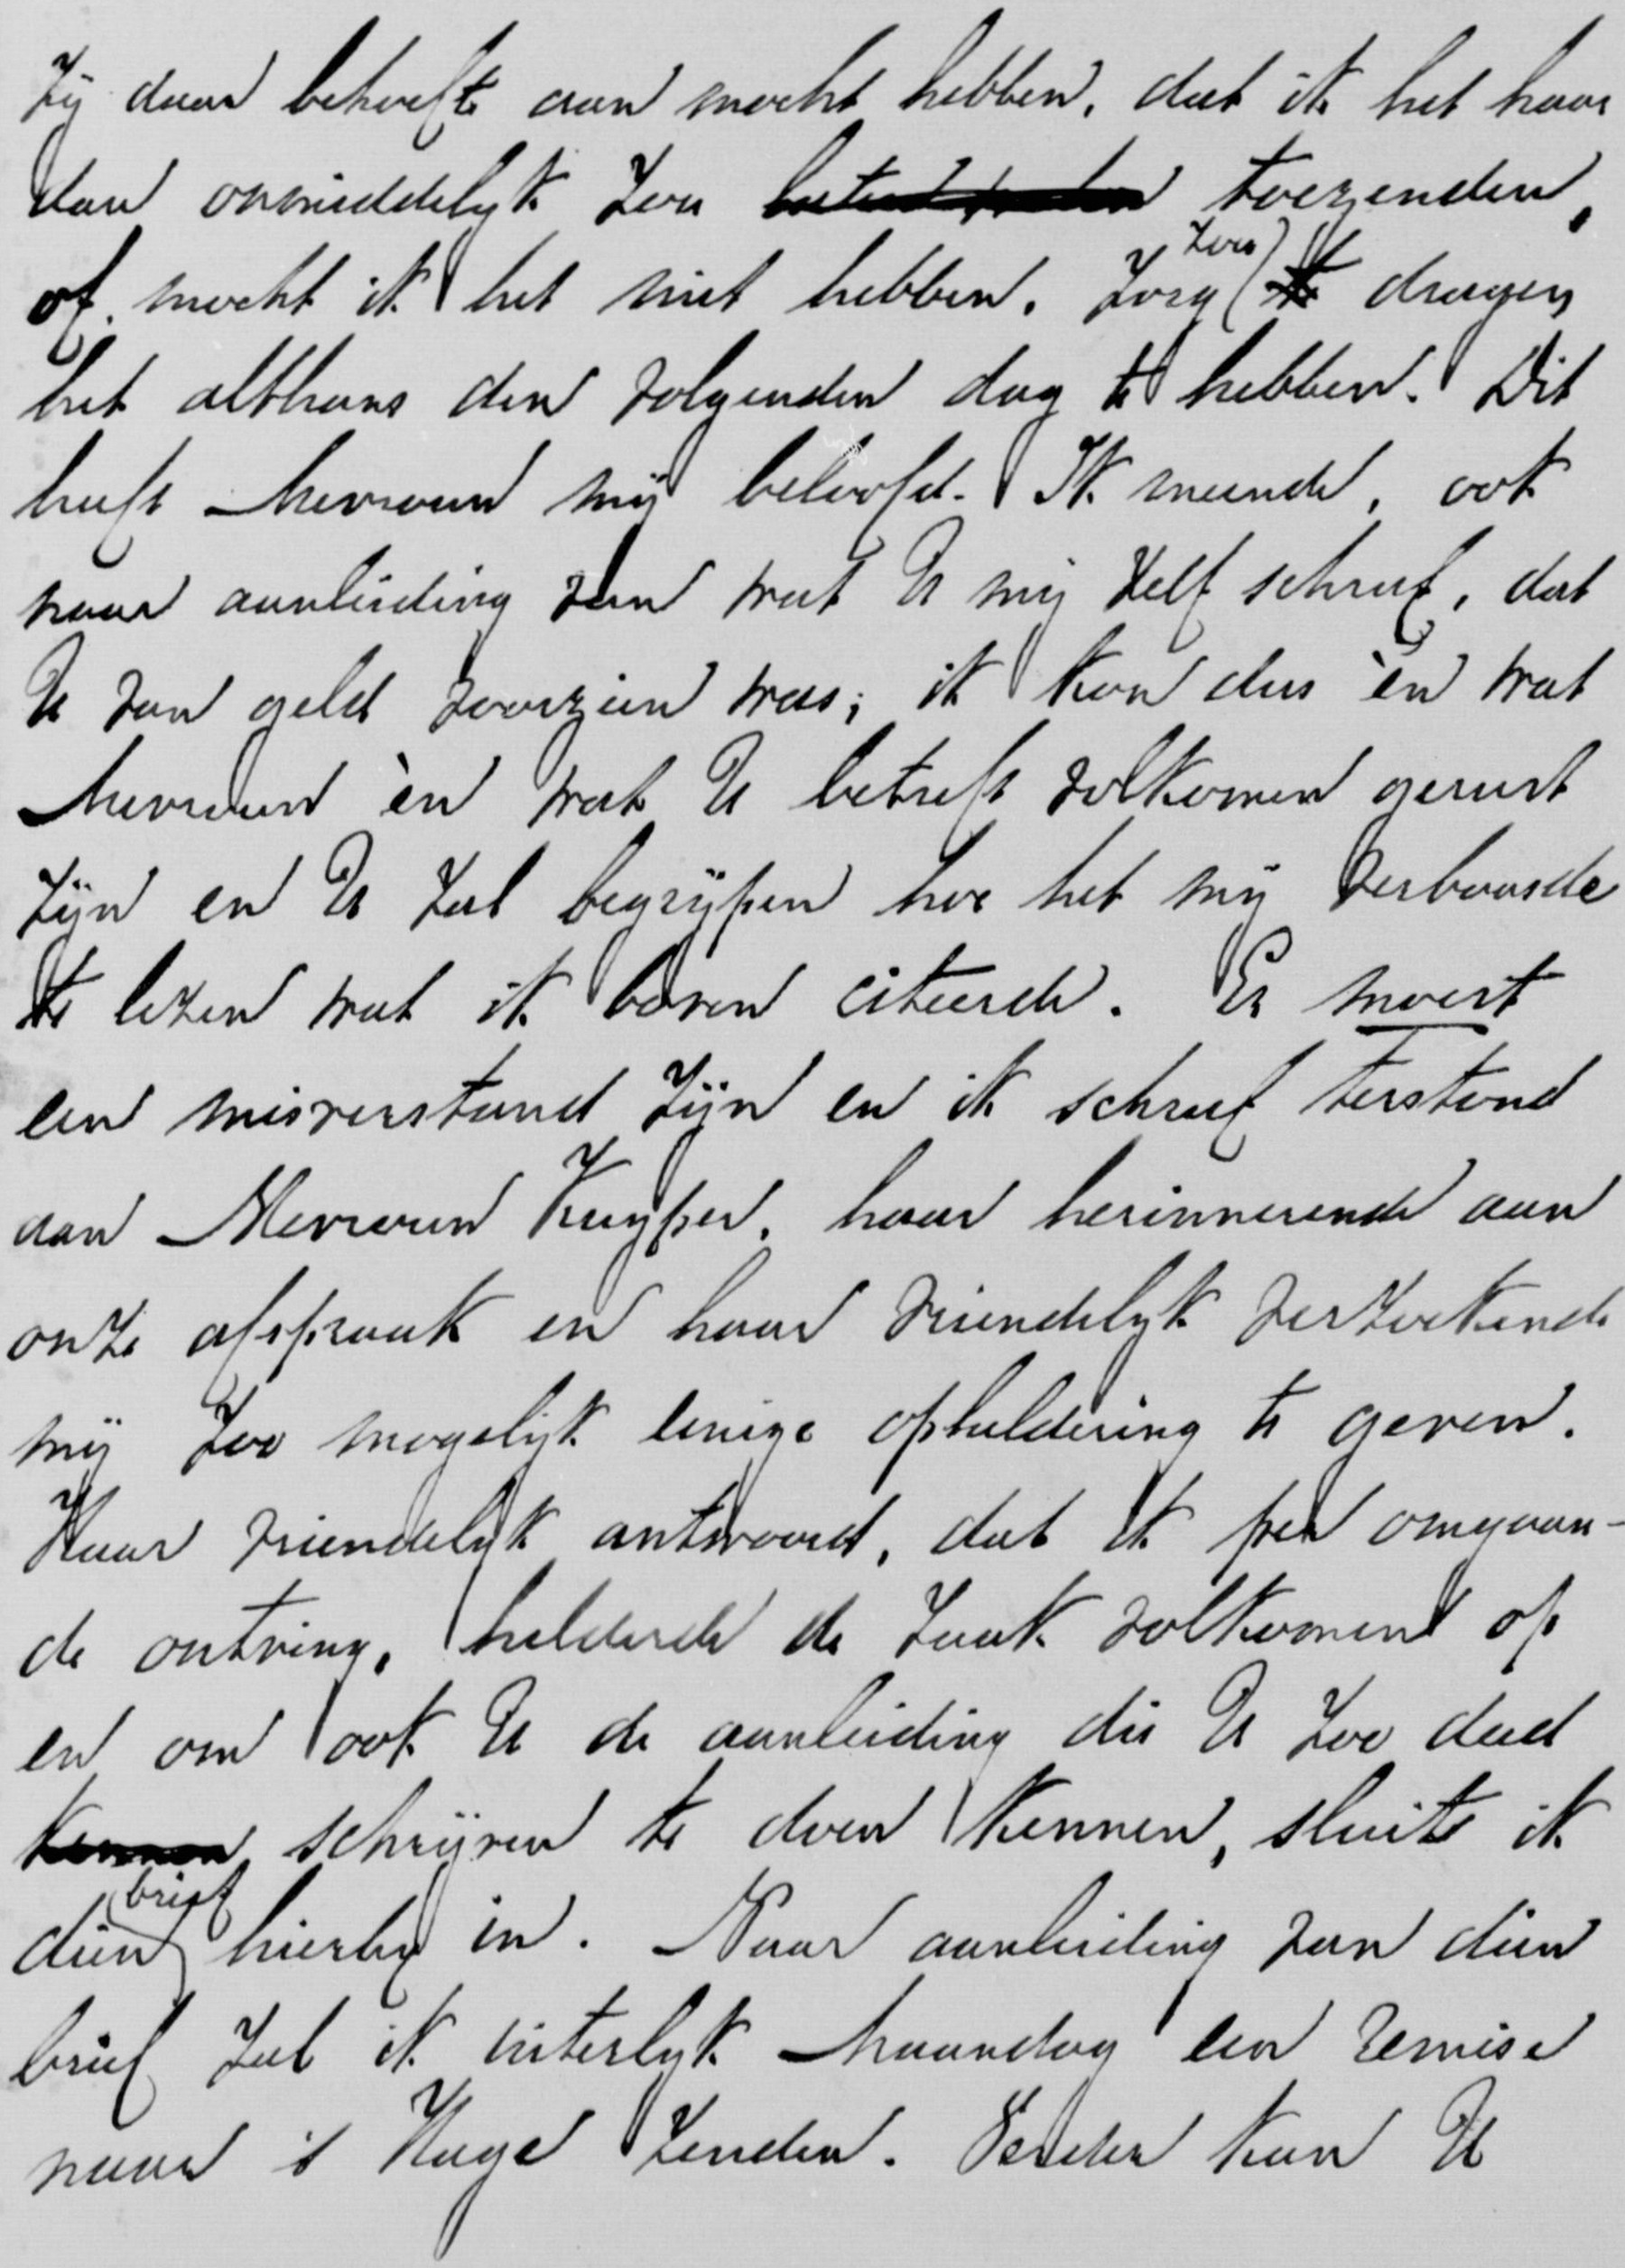 zij daar behoefte aan mocht hebben, dat ik het haar
dan onmiddelyk zou toezenden,
of, mocht ik het niet hebben, zorg zou dragen
het althans den volgenden dag te hebben. Dit
heeft Mevrouw mij beloofd. Ik meende, ook
naar aanleiding van wat U mij zelf schreef, dat
U van geld voorzien was; ik kon dus èn wat
Mevrouw èn wat U betreft volkomen gerust
zijn en U zal begrijpen hoe het mij verbaasde
te lezen wat ik boven citeerde. Er moest
een misverstand zijn en ik schreef terstond
aan Mevrouw Kuyper, haar herinnerende aan
onze afspraak en haar vriendelyk verzoekende
mij zoo mogelijk eenige opheldering te geven.
Haar vriendelyk antwoord, dat ik per omgaan-
de ontving, helderde de zaak volkomen op
en om ook U de aanleiding die U zoo deed
kennen schrijven te doen kennen, sluit ik
dien brief hierby in. Naar aanleiding van dien
brief zal ik uiterlyk Maandag een remise
naar 's Hage zenden. Verder kan U